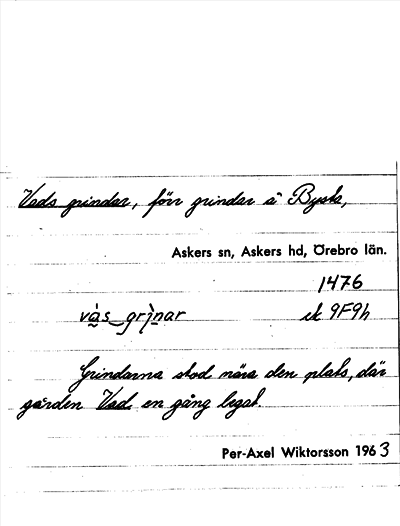 Vads grindar, förr grindar å Bysta,
Askers sn, Askers hd, Örebro län.
1476
vàs grìnar ek 9F9h
Grindarna stod nära den plats, där
gården Vad en gång legat.
Per-Axel Wiktorsson 1963